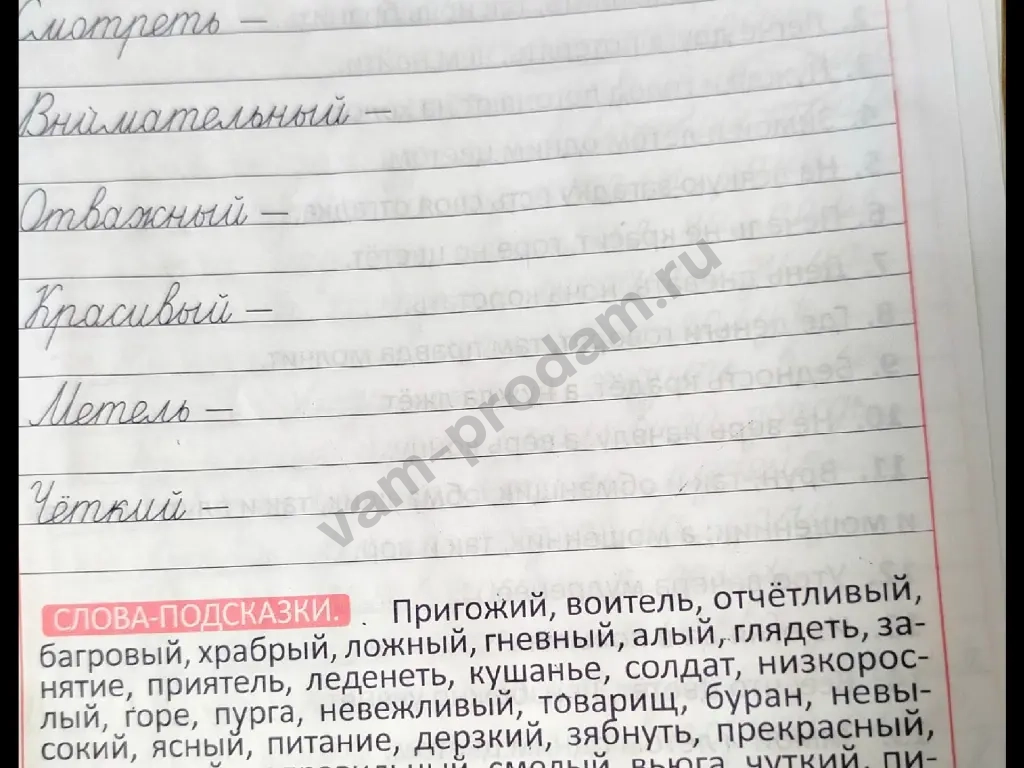 Смотреть –
Внимательный –
Отважный –
Красивый –
Метель –
Чёткий –
vam-prodam.ru
СЛОВА-ПОДСКАЗКИ. Пригожий, воитель, отчётливый,
багровый, храбрый, ложный, гневный, алый, глядеть, за-
нятие, приятель, леденеть, кушанье, солдат, низкорос-
лый, горе, пурга, невежливый, товарищ, буран, невы-
сокий, ясный, питание, дерзкий, зябнуть, прекрасный,
смелый, вьюга, чуткий, пи-